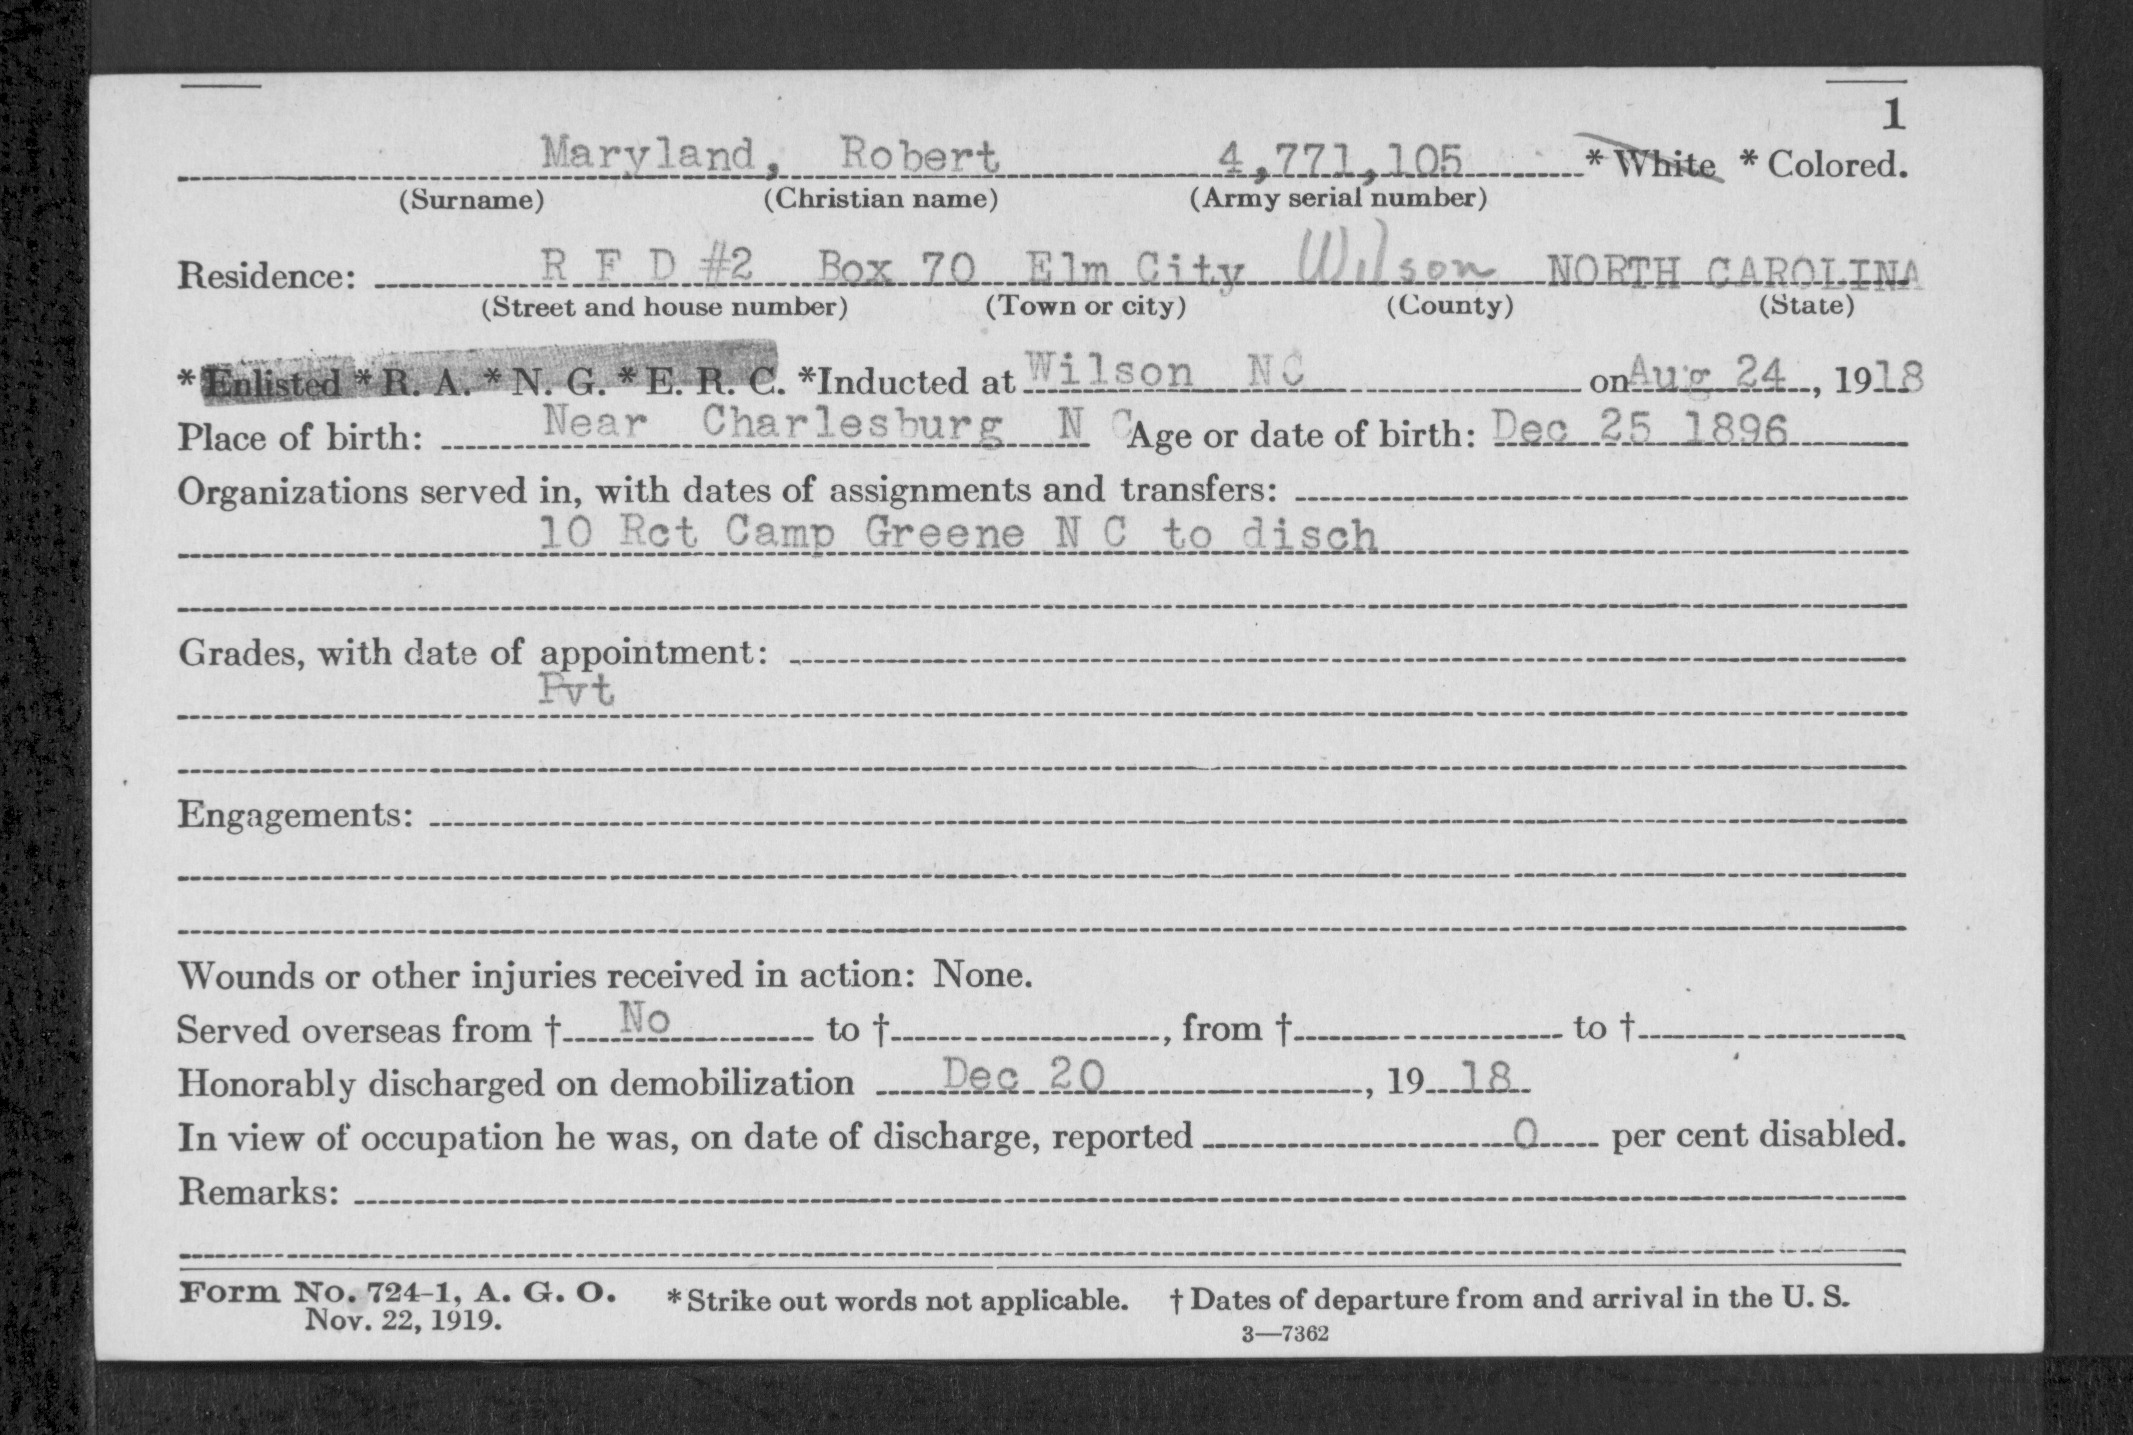 1
Maryland, Robert 4,771,105 * White * Colored.
(Surname) (Christian name) (Army serial number)
Residence: R F D #2 Box 70 Elm City Wilson NORTH CAROLINA
(Street and house number) (Town or city) (County) (State)
* Enlisted * R. A. * N. G. * E. R. C. *Inducted at Wilson NC on Aug 24, 1918
Place of birth: Near Charlesburg N C Age or date of birth: Dec 25 1896
Organizations served in, with dates of assignments and transfers:
10 Rct Camp Greene N C to disch
Grades, with date of appointment:
Pvt
Engagements:
Wounds or other injuries received in action: None.
Served overseas from † No to †, from † to †
Honorably discharged on demobilization Dec 20, 19 18
In view of occupation he was, on date of discharge, reported 0 per cent disabled.
Remarks:
Form No. 724-1, A. G. O. * Strike out words not applicable. † Dates of departure from and arrival in the U. S.
Nov. 22, 1919. 3—7362